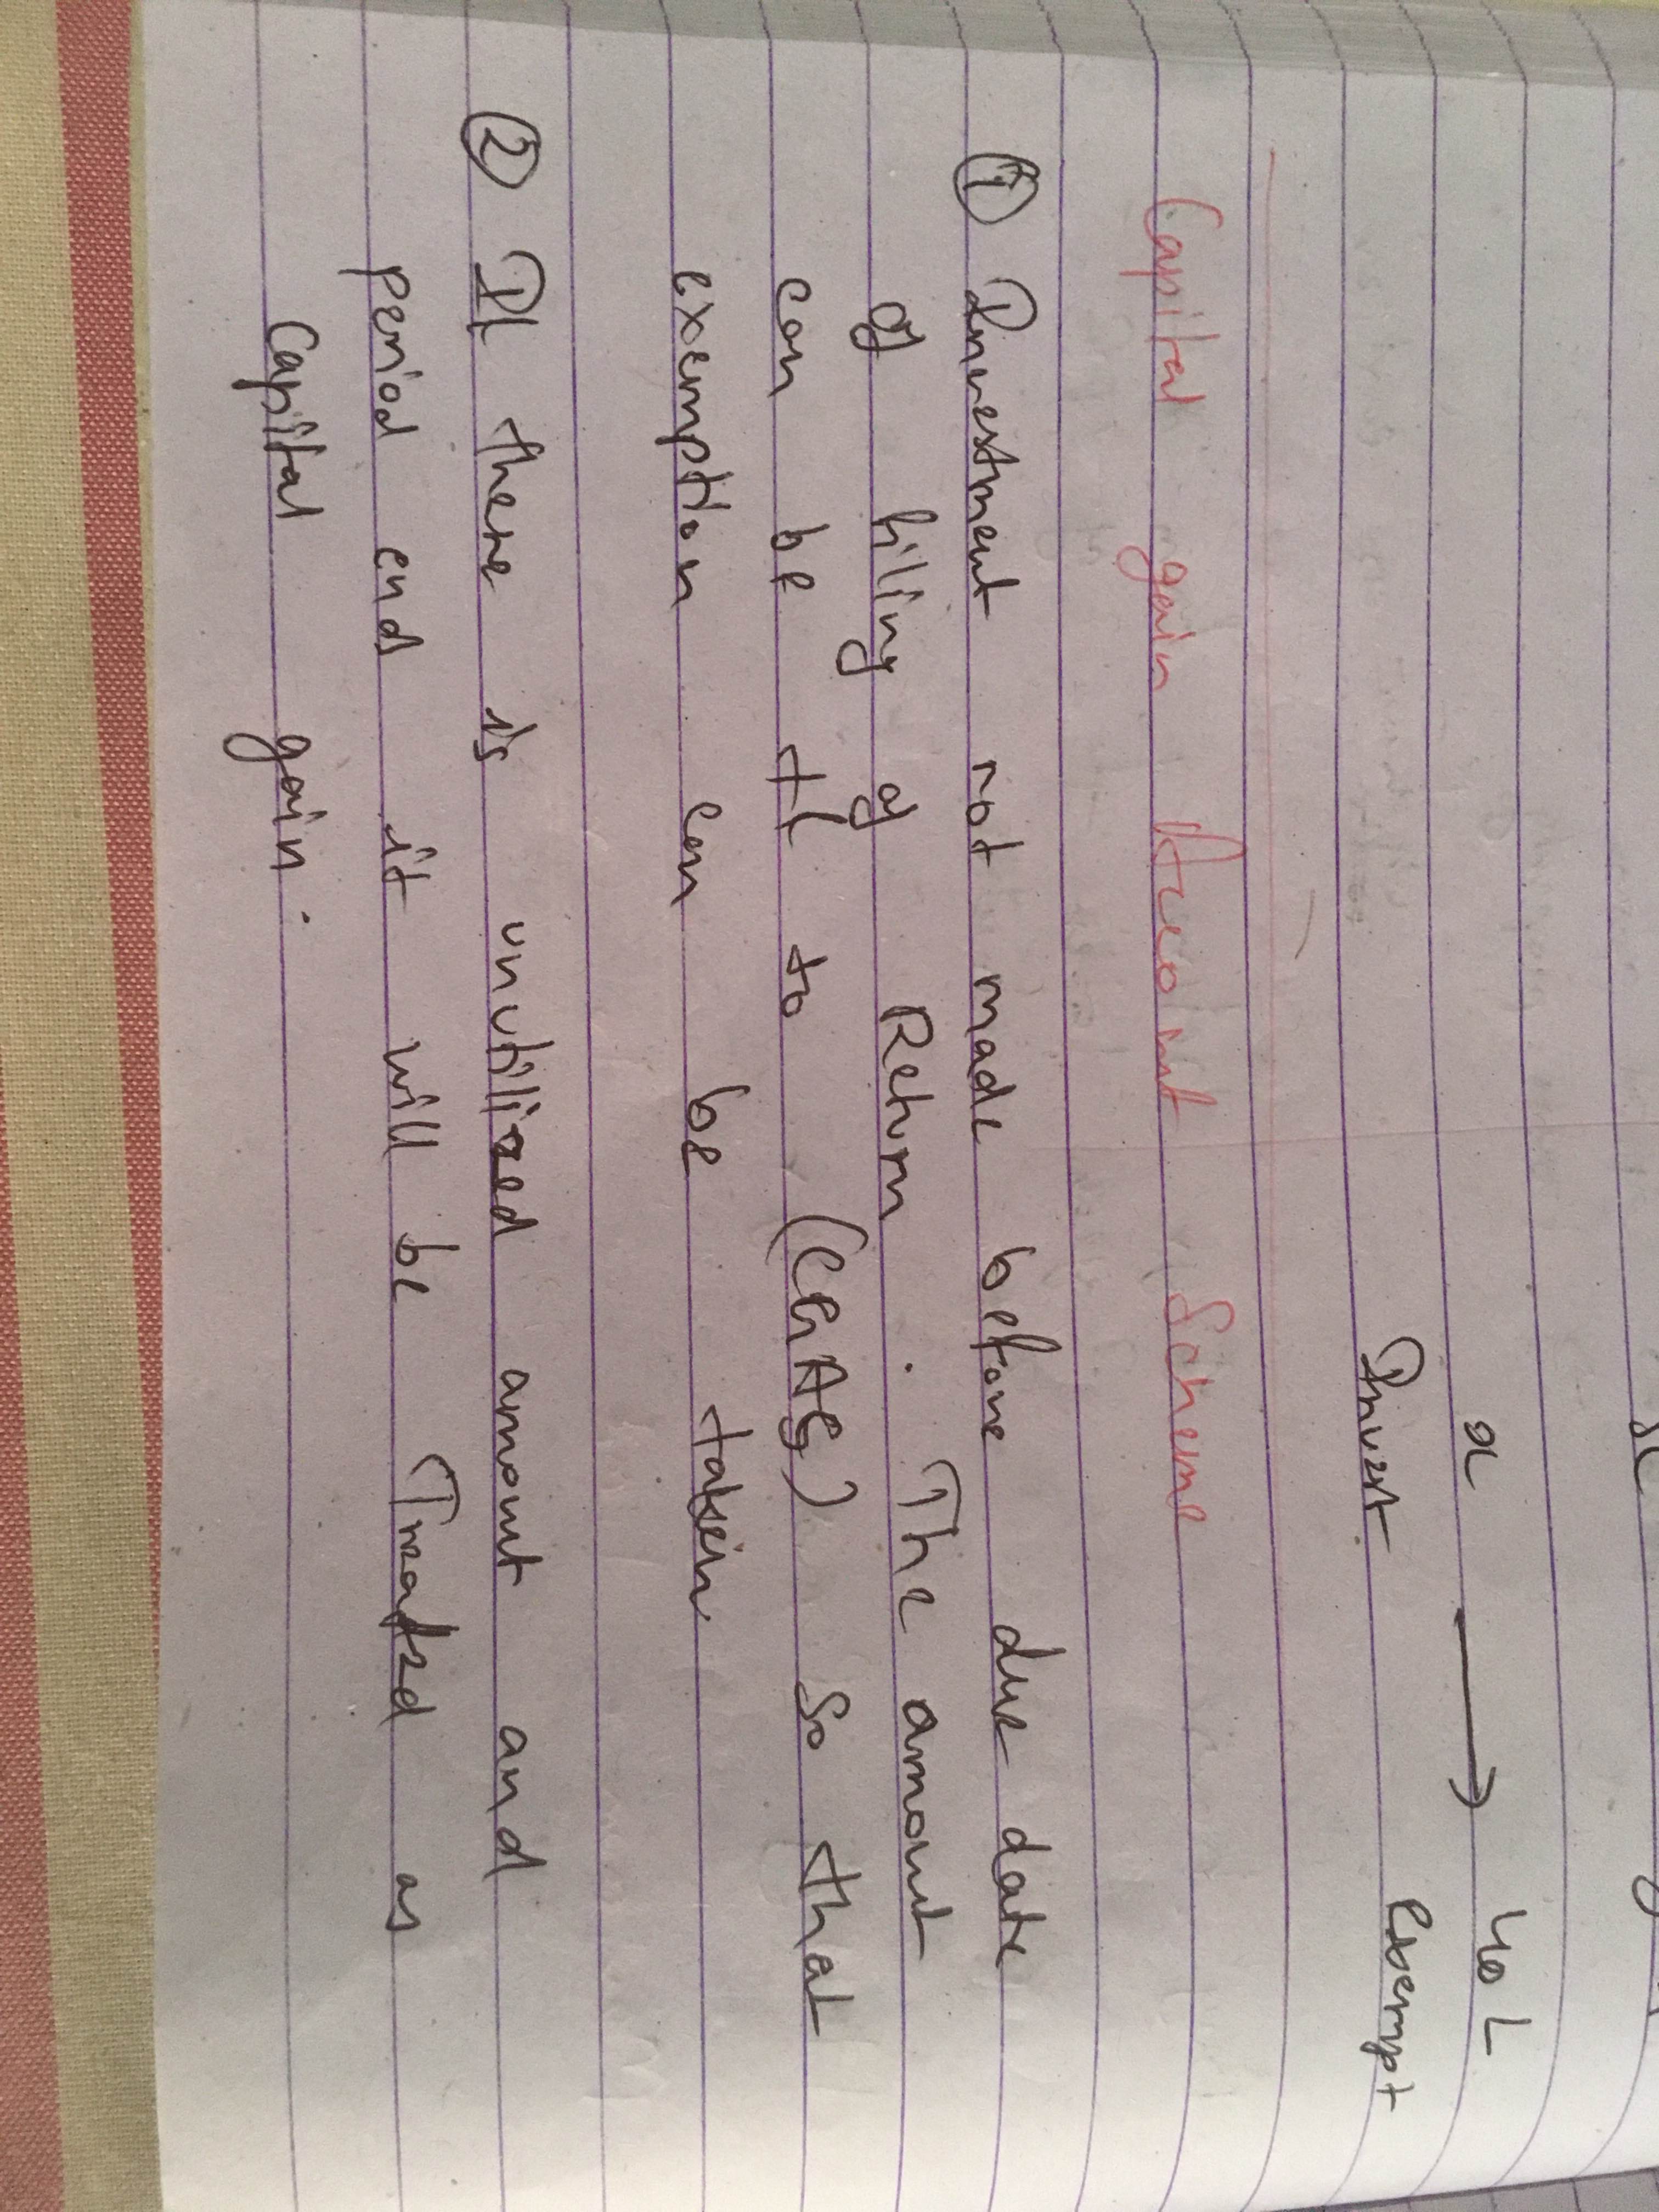 x → 40 L
Invest Exempt
Capital gain Account Scheme
① Investment not made before due date
of filing of Return. The amount
can be tf to (CGAS) so that
exemption can be taken
② If there is unutilized amount and
period end it will be Treated as
Capital gain.